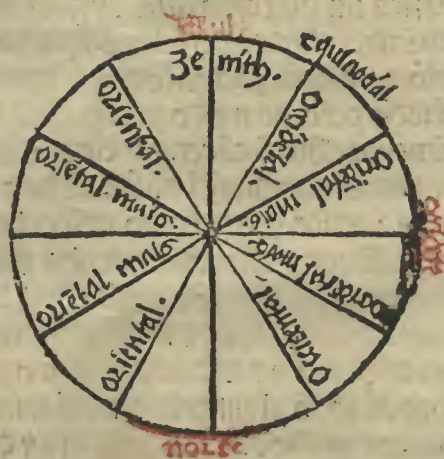 Ze nith.
equinocial
occidētal.
occidētal mais.
occidētal mais
occidental
oriental.
oriētal mais
oriētal mais.
oriental.
norte